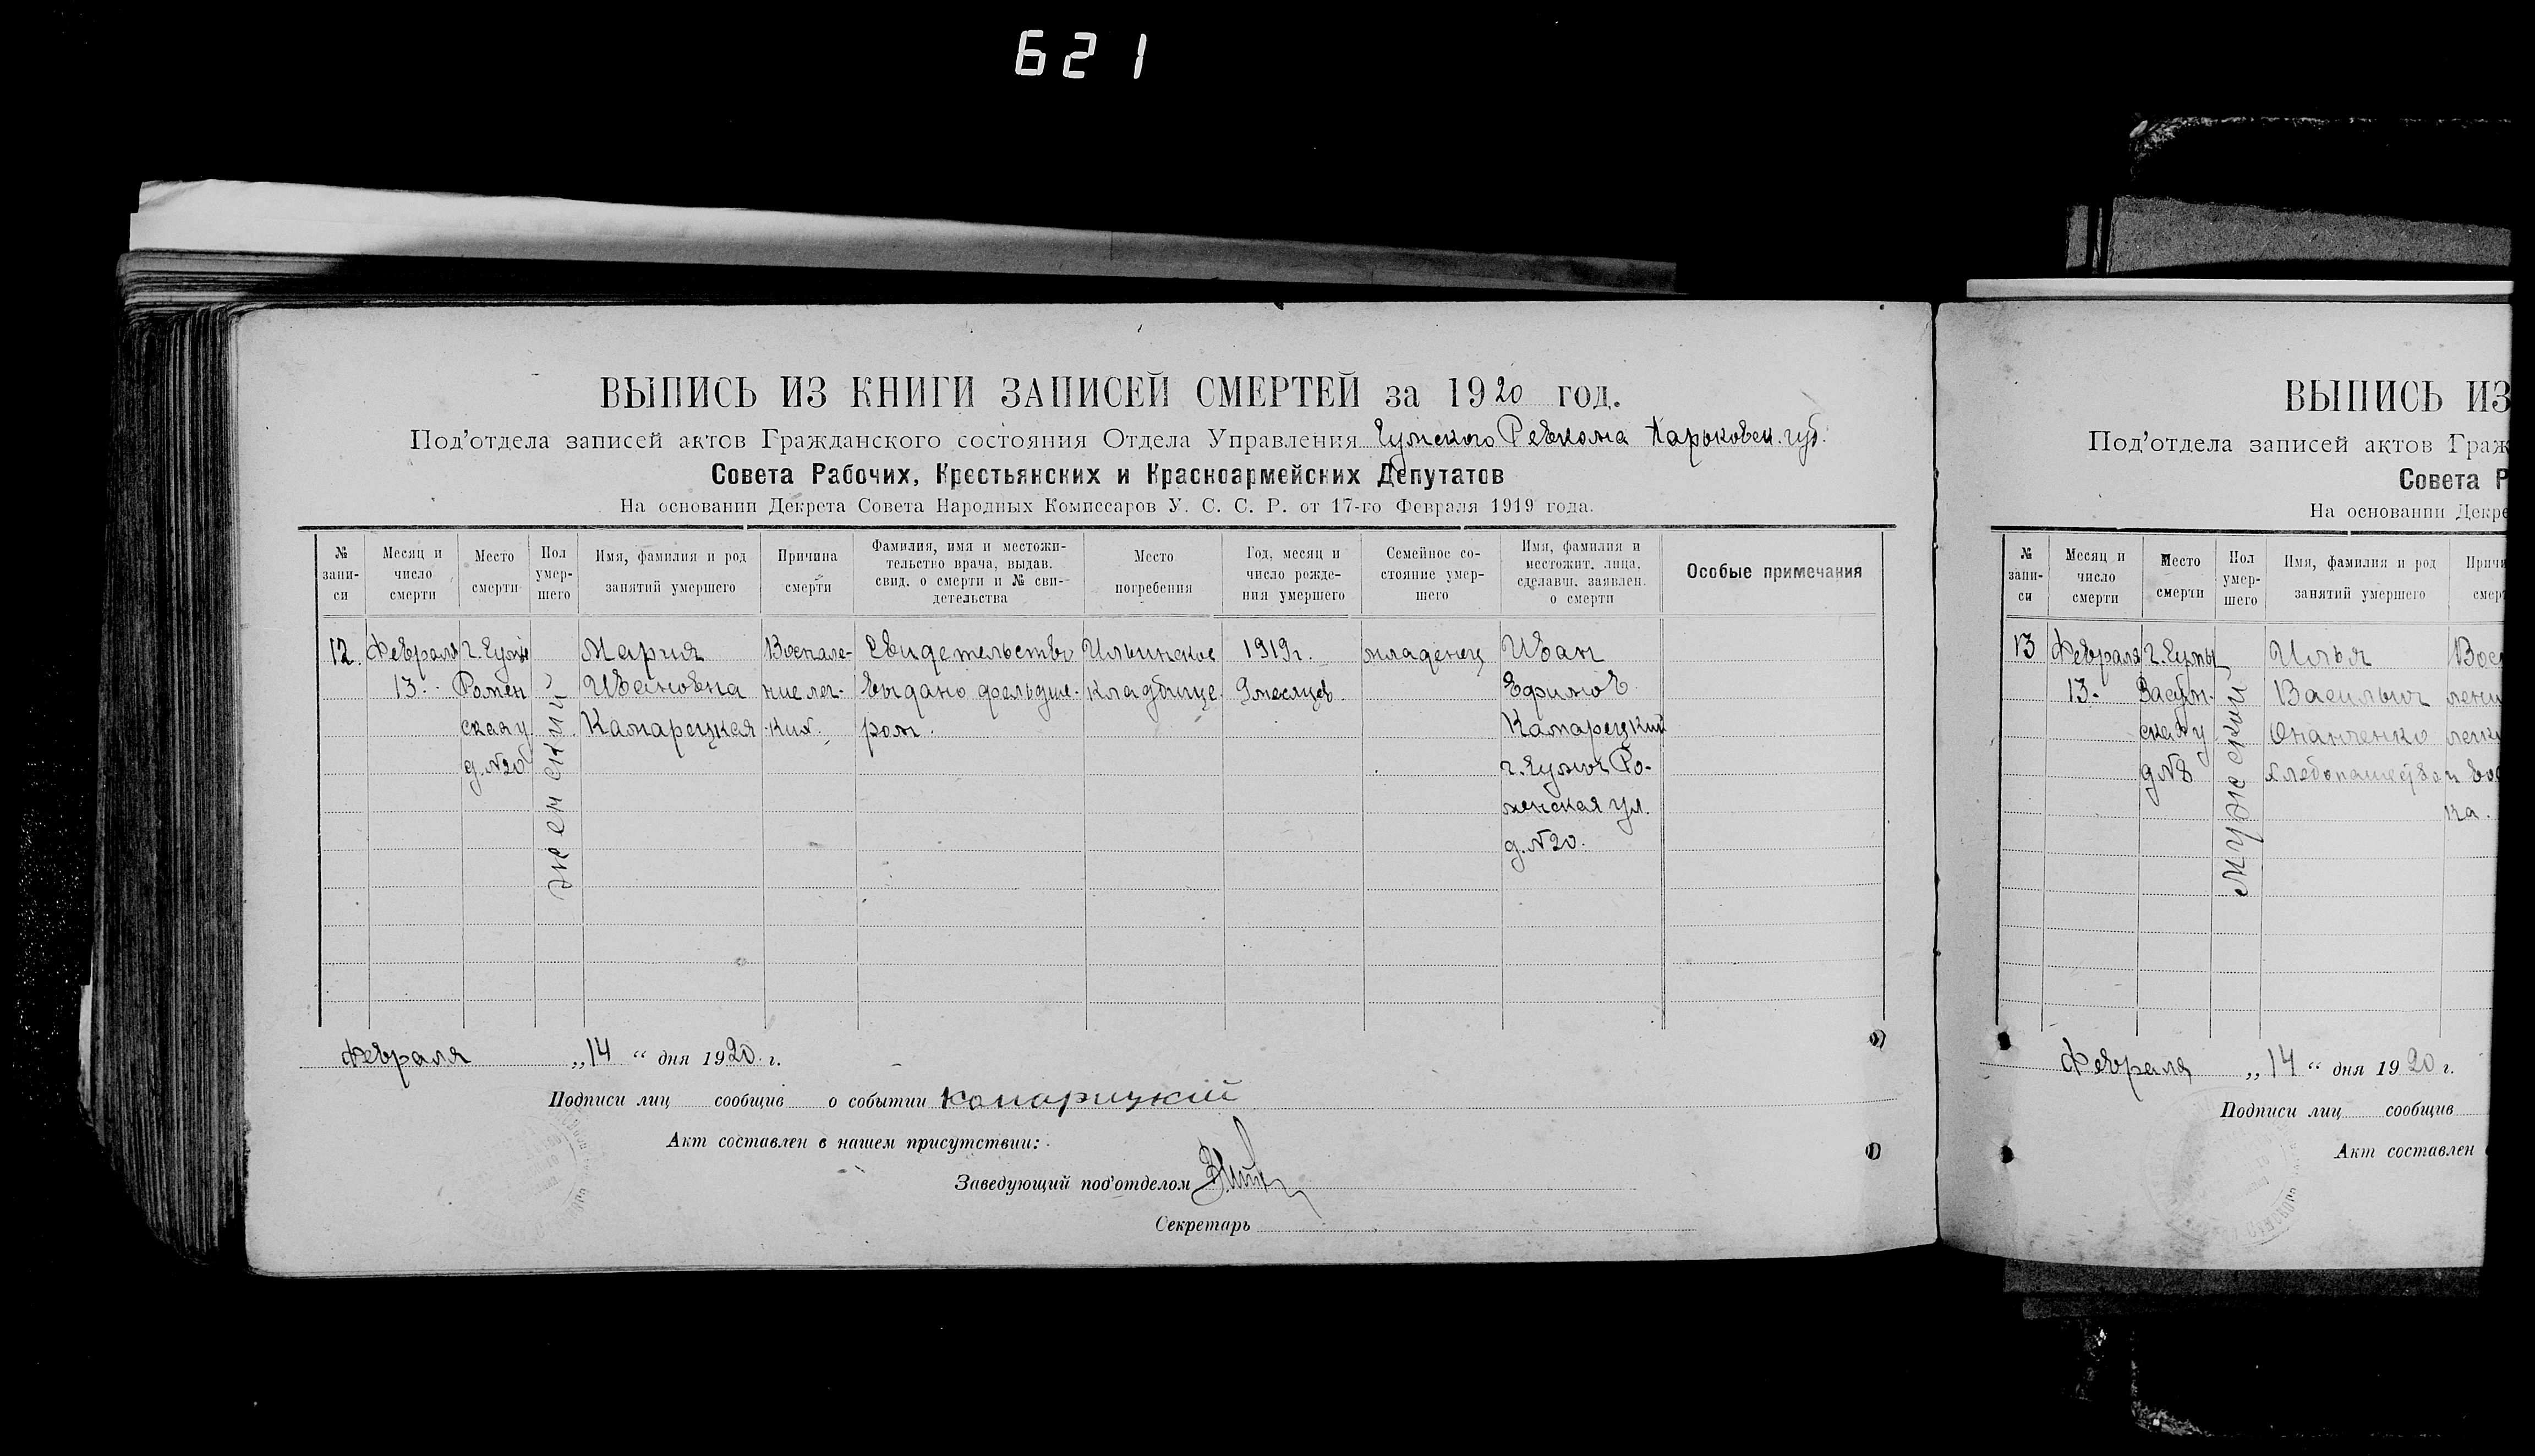 621
ВЫПИСЬ ИЗ КНИГИ ЗАПИСЕЙ СМЕРТЕЙ за 1920 год.
Под'отдела записей актов Гражданского состояния Отдела Управления Сумского Ревкома Харьковск. губ.
Совета Рабочих, Крестьянских и Красноармейских Депутатов
На основании Декрета Совета Народных Комиссаров У. С. С. Р. от 17-го Февраля 1919 года.
№ запи-си
Месяц и число смерти
Место смерти
Пол умер-шего
Имя, фамилия и род занятий умершего
Причина смерти
Фамилия, имя и местожи-тельство врача, выдав. свид. о смерти и № сви-детельства
Место погребения
Год, месяц и число рожде-ния умершего
Семейное со-стояние умер-шего
Имя, фамилия и местожит. лица, сделавш. заявлен. о смерти
Особые примечания
12.
Февраля
13.
г. Сумы
Ромен
ская у.
д. №20
женский
Мария
Ивановна
Камарецкая
Воспале-
ние лег-
ких.
Свидетельство
выдано фельдше-
ром.
Ильинское
кладбище.
1919г.
9 месяцев.
младенец
Иван
Ефимов
Камарецкий
г. Сумы Ро-
менская ул.
д. №20.
Февраля „14“ дня 1920 г.
Подписи лиц сообщив о событии Комарицкий
Акт составлен в нашем присутствии:
Заведующий под'отделом
Секретарь
ВЫПИСЬ ИЗ
Под'отдела записей актов Граж
Совета Р
На основании Декре
№ запи-си
Месяц и число смерти
Место смерти
Пол умер-шего
Имя, фамилия и род занятий умершего
Причи
смерт
13
Февраля
13.
г. Сумы
Засум-
ская у
д №8
мужеский
Илья
Васильич
Онанченко
Вос
лени
легки
ка.
Февраля „14“ дня 1920 г.
Подписи лиц сообщив
Акт составлен